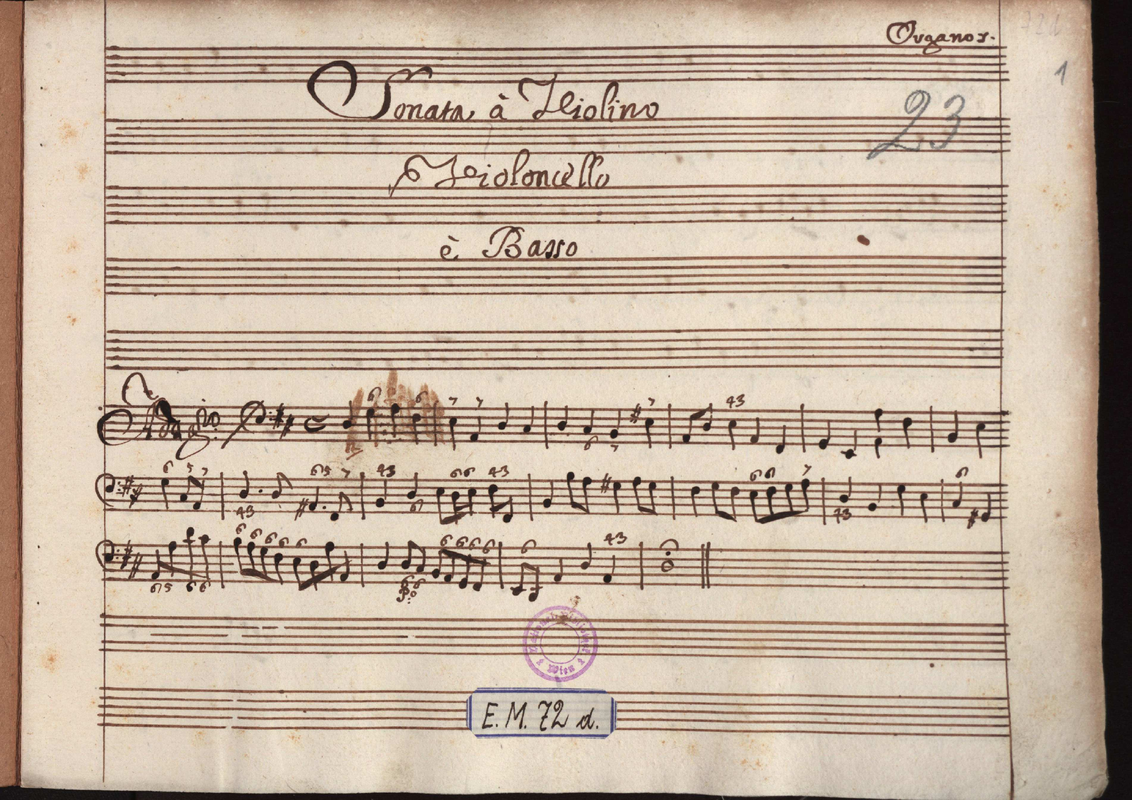 Organo
1
23
Sonata à Violino
Violoncello
è Basso
Adagio
E. M. 72 d.